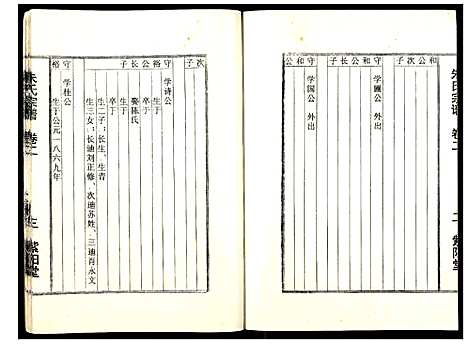 朱氏宗谱 卷二 二 紫阳堂
守和公
学圃公 外出
守和公
学国公 外出
次子
守裕公长子
学诗公
生于
卒于
娶陈氏
生于
卒于
生二子：长生、生青
生三女：长适刘正修、次适苏姓、三适肖永文
守裕
学仕公
生于公元一八六九年
朱氏宗谱 卷二 三 紫阳堂